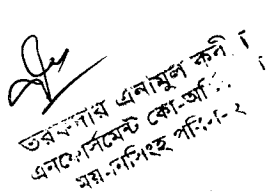 তরফদার এনামুল কবী
এনফোর্সমেন্ট কো-অর্ডি
ময়মনসিংহ পবিস-২